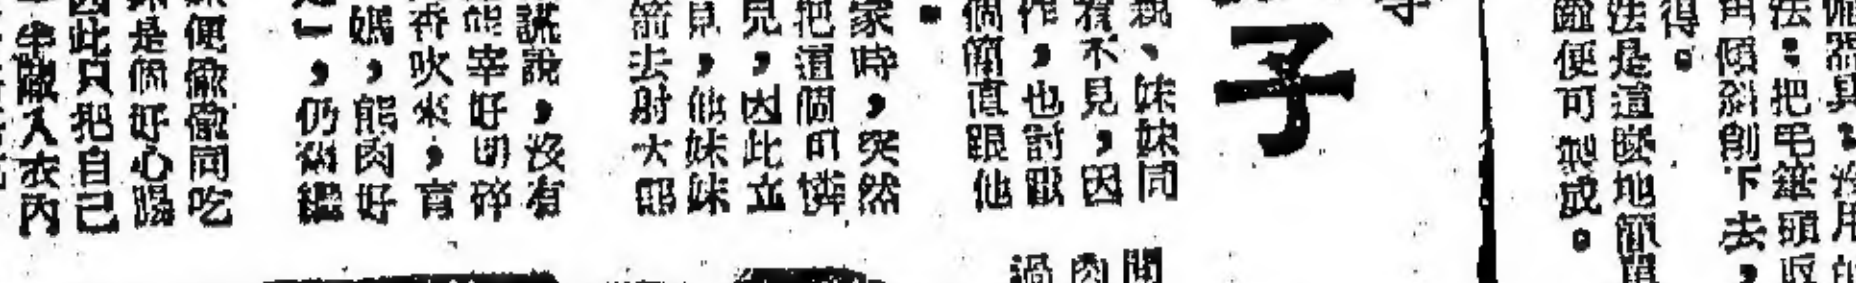 備器具，沒用的
法：把毛筆頭返
角傾斜削下去，
得。
法是這麼地簡單
鐙便可製成。
子
親、妹妹同
看不見，因
作，也討厭
個簡直跟他
家時，突然
把這個可憐
見，因此立
見，他妹妹
箭去射大熊
謊說，沒有
熊宰好切碎
香吹來，盲
媽，熊肉好
是一，仍舊繼
妹便偷偷同吃
妹是個好心腸
因此只把自己
半藏入衣內
閒
肉
過